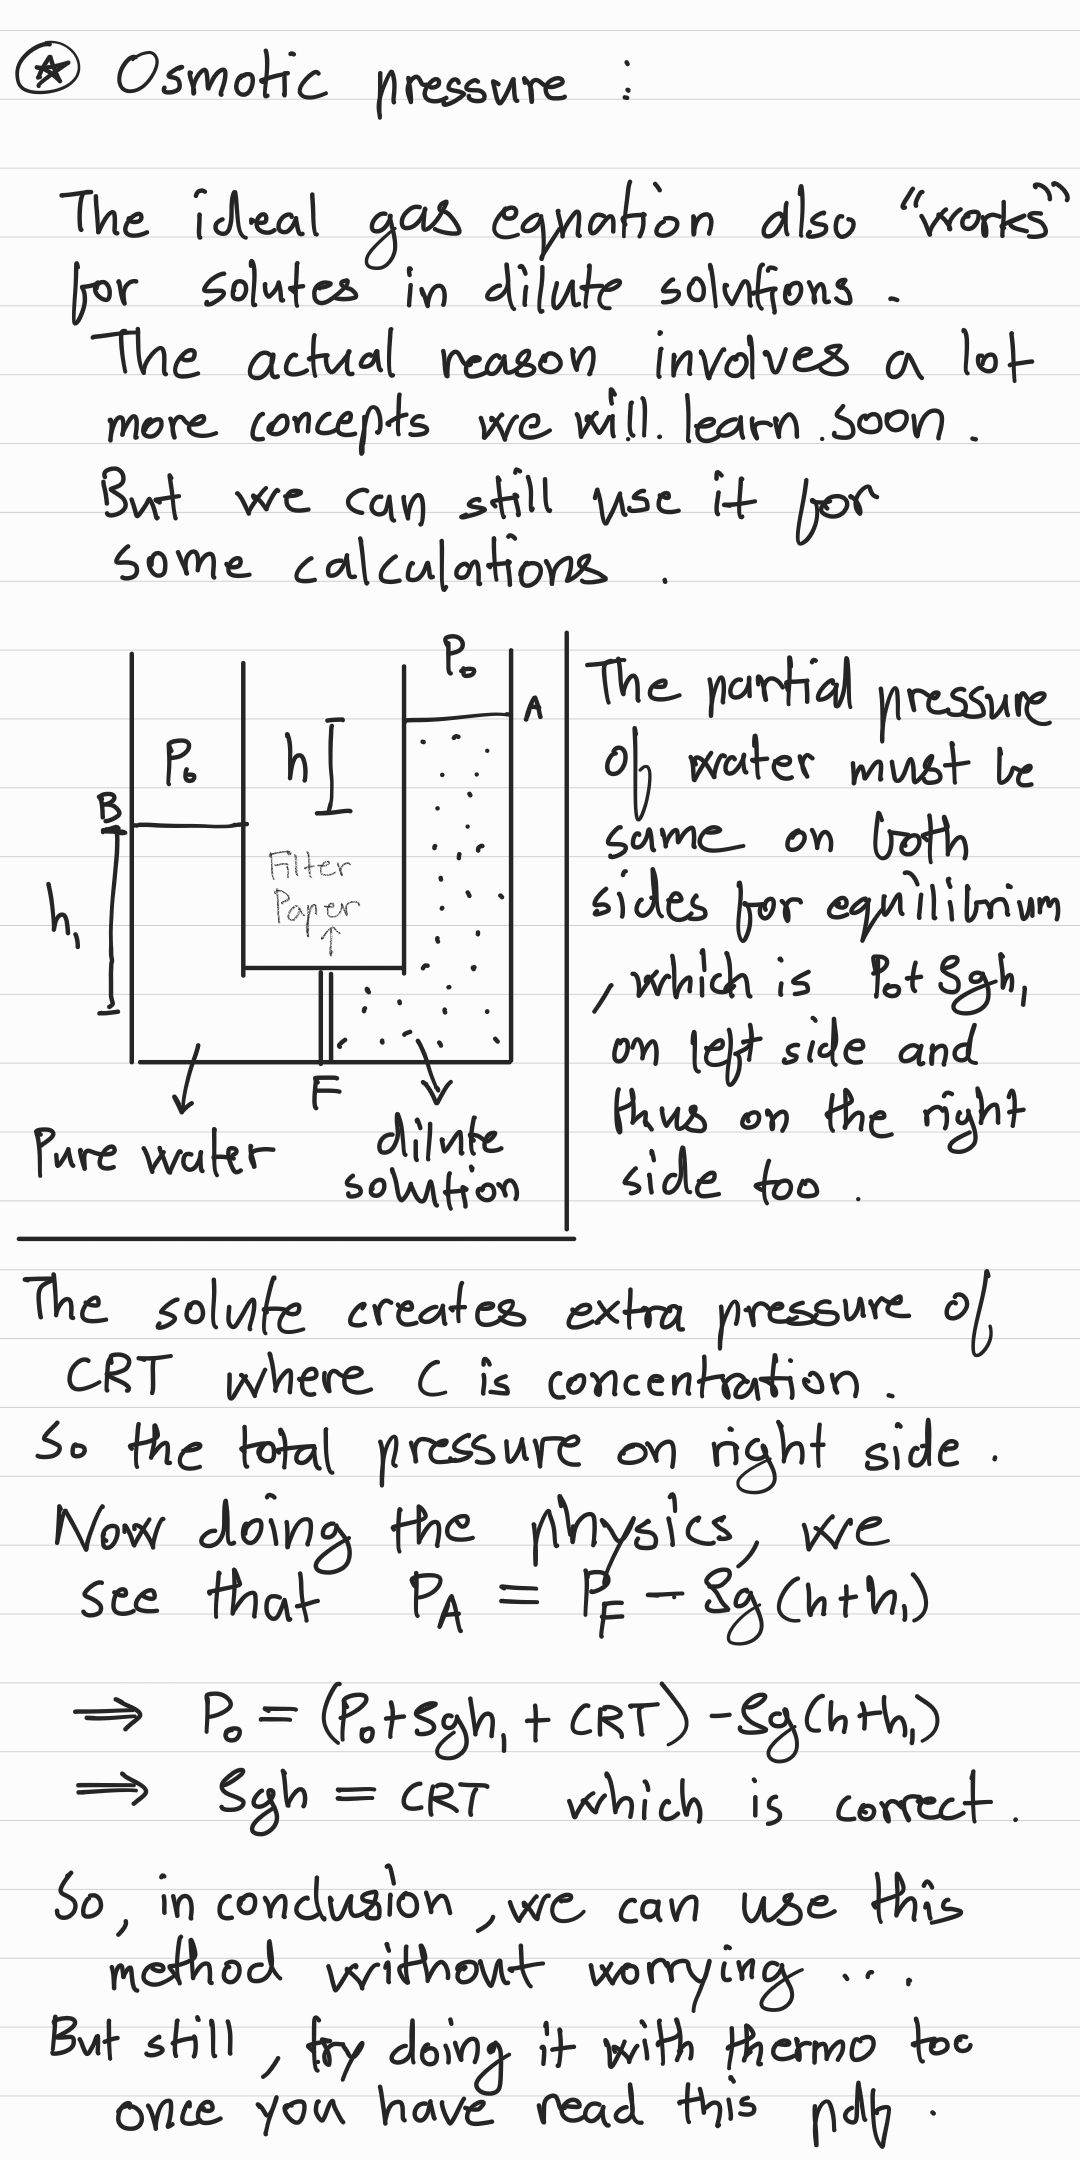 Osmotic pressure :
The ideal gas equation also "works"
for solutes in dilute solutions .
The actual reason involves a lot
more concepts we will learn soon .
But we can still use it for
some calculations .
P₀
A
P₀
h
B
h₁
Filter
Paper
F
Pure water
dilute
solution
The partial pressure
of water must be
same on both
sides for equilibrium
, which is P₀ + ρgh₁
on left side and
thus on the right
side too .
The solute creates extra pressure of
CRT where C is concentration .
So the total pressure on right side .
Now doing the physics, we
see that P_A = P_F − ρg(h+h₁)
⟹ P₀ = (P₀ + ρgh₁ + CRT) − ρg(h+h₁)
⟹ ρgh = CRT which is correct .
So, in conclusion, we can use this
method without worrying ...
But still, try doing it with thermo too
once you have read this pdf .